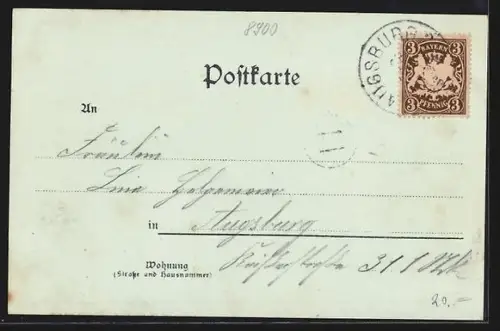 8900
AUGSBURG
3 BAYERN 3
3 PFENNIG 3
Postkarte
An
Fräulein
Lina
in Augsburg
31 I
Wohnung
(Straße und Hausnummer)
20.-